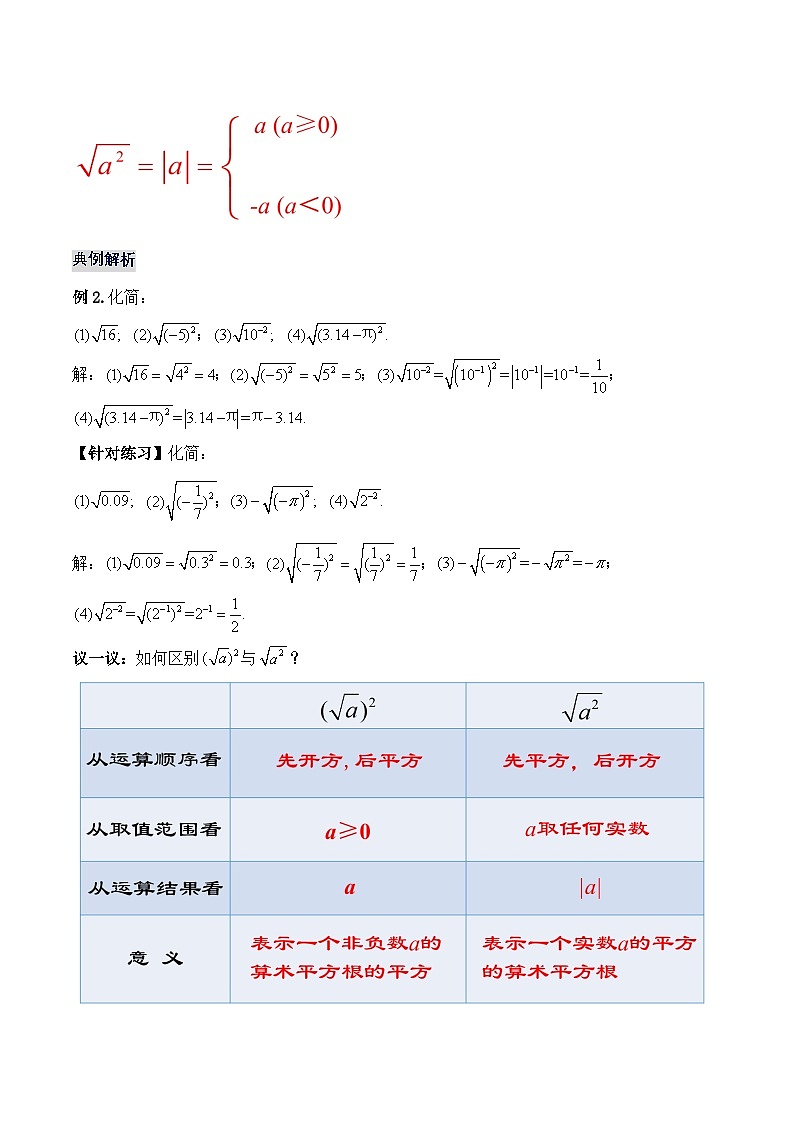 √a² = |a| = { a (a≥0)
-a (a＜0)
典例解析
例2.化简：
(1)√16; (2)√(−5)²；(3)√10⁻²; (4)√(3.14−π)².
解：(1)√16 = √4² = 4；(2)√(−5)² = √5² = 5；(3)√10⁻²=√(10⁻¹)²=|10⁻¹|=10⁻¹=1/10；
(4)√(3.14−π)²=|3.14−π|=π−3.14.
【针对练习】化简：
(1)√0.09; (2)√(−1/7)²；(3)−√(−π)²; (4)√2⁻².
解：(1)√0.09 = √0.3² = 0.3；(2)√(−1/7)² = √(1/7)² = 1/7；(3)−√(−π)²=−√π²=−π；
(4)√2⁻²=√(2⁻¹)²=2⁻¹ = 1/2.
议一议：如何区别(√a)²与√a²？
(√a)² √a²
从运算顺序看 先开方,后平方 先平方，后开方
从取值范围看 a≥0 a取任何实数
从运算结果看 a |a|
意 义 表示一个非负数a的算术平方根的平方 表示一个实数a的平方的算术平方根